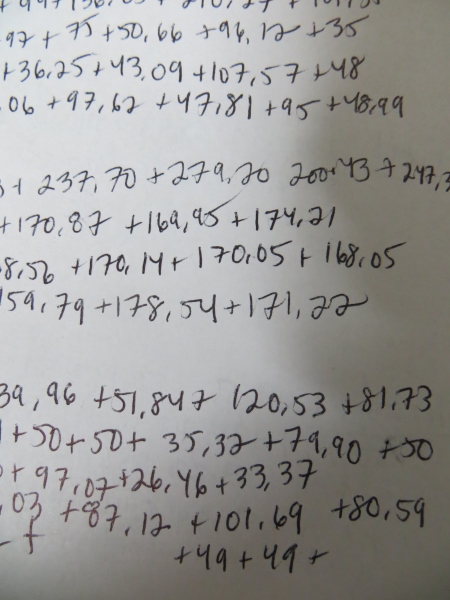 .97 + 75 + 50,66 + 96,12 + 35
+ 36,25 + 43,09 + 107,57 + 48
.06 + 97,62 + 47,81 + 95 + 48,99
+ 237,70 + 279,20 200,43 + 247,3
+ 170,87 + 169,95 + 174,21
8,56 + 170,14 + 170,05 + 168,05
159,79 + 178,54 + 171,22
39,96 + 51,84 + 120,53 + 81,73
+ 50 + 50 + 35,32 + 79,90 + 50
+ 97,07 + 26,46 + 33,37
,03 + 87,12 + 101,69 + 80,59
+ 49 + 49 +